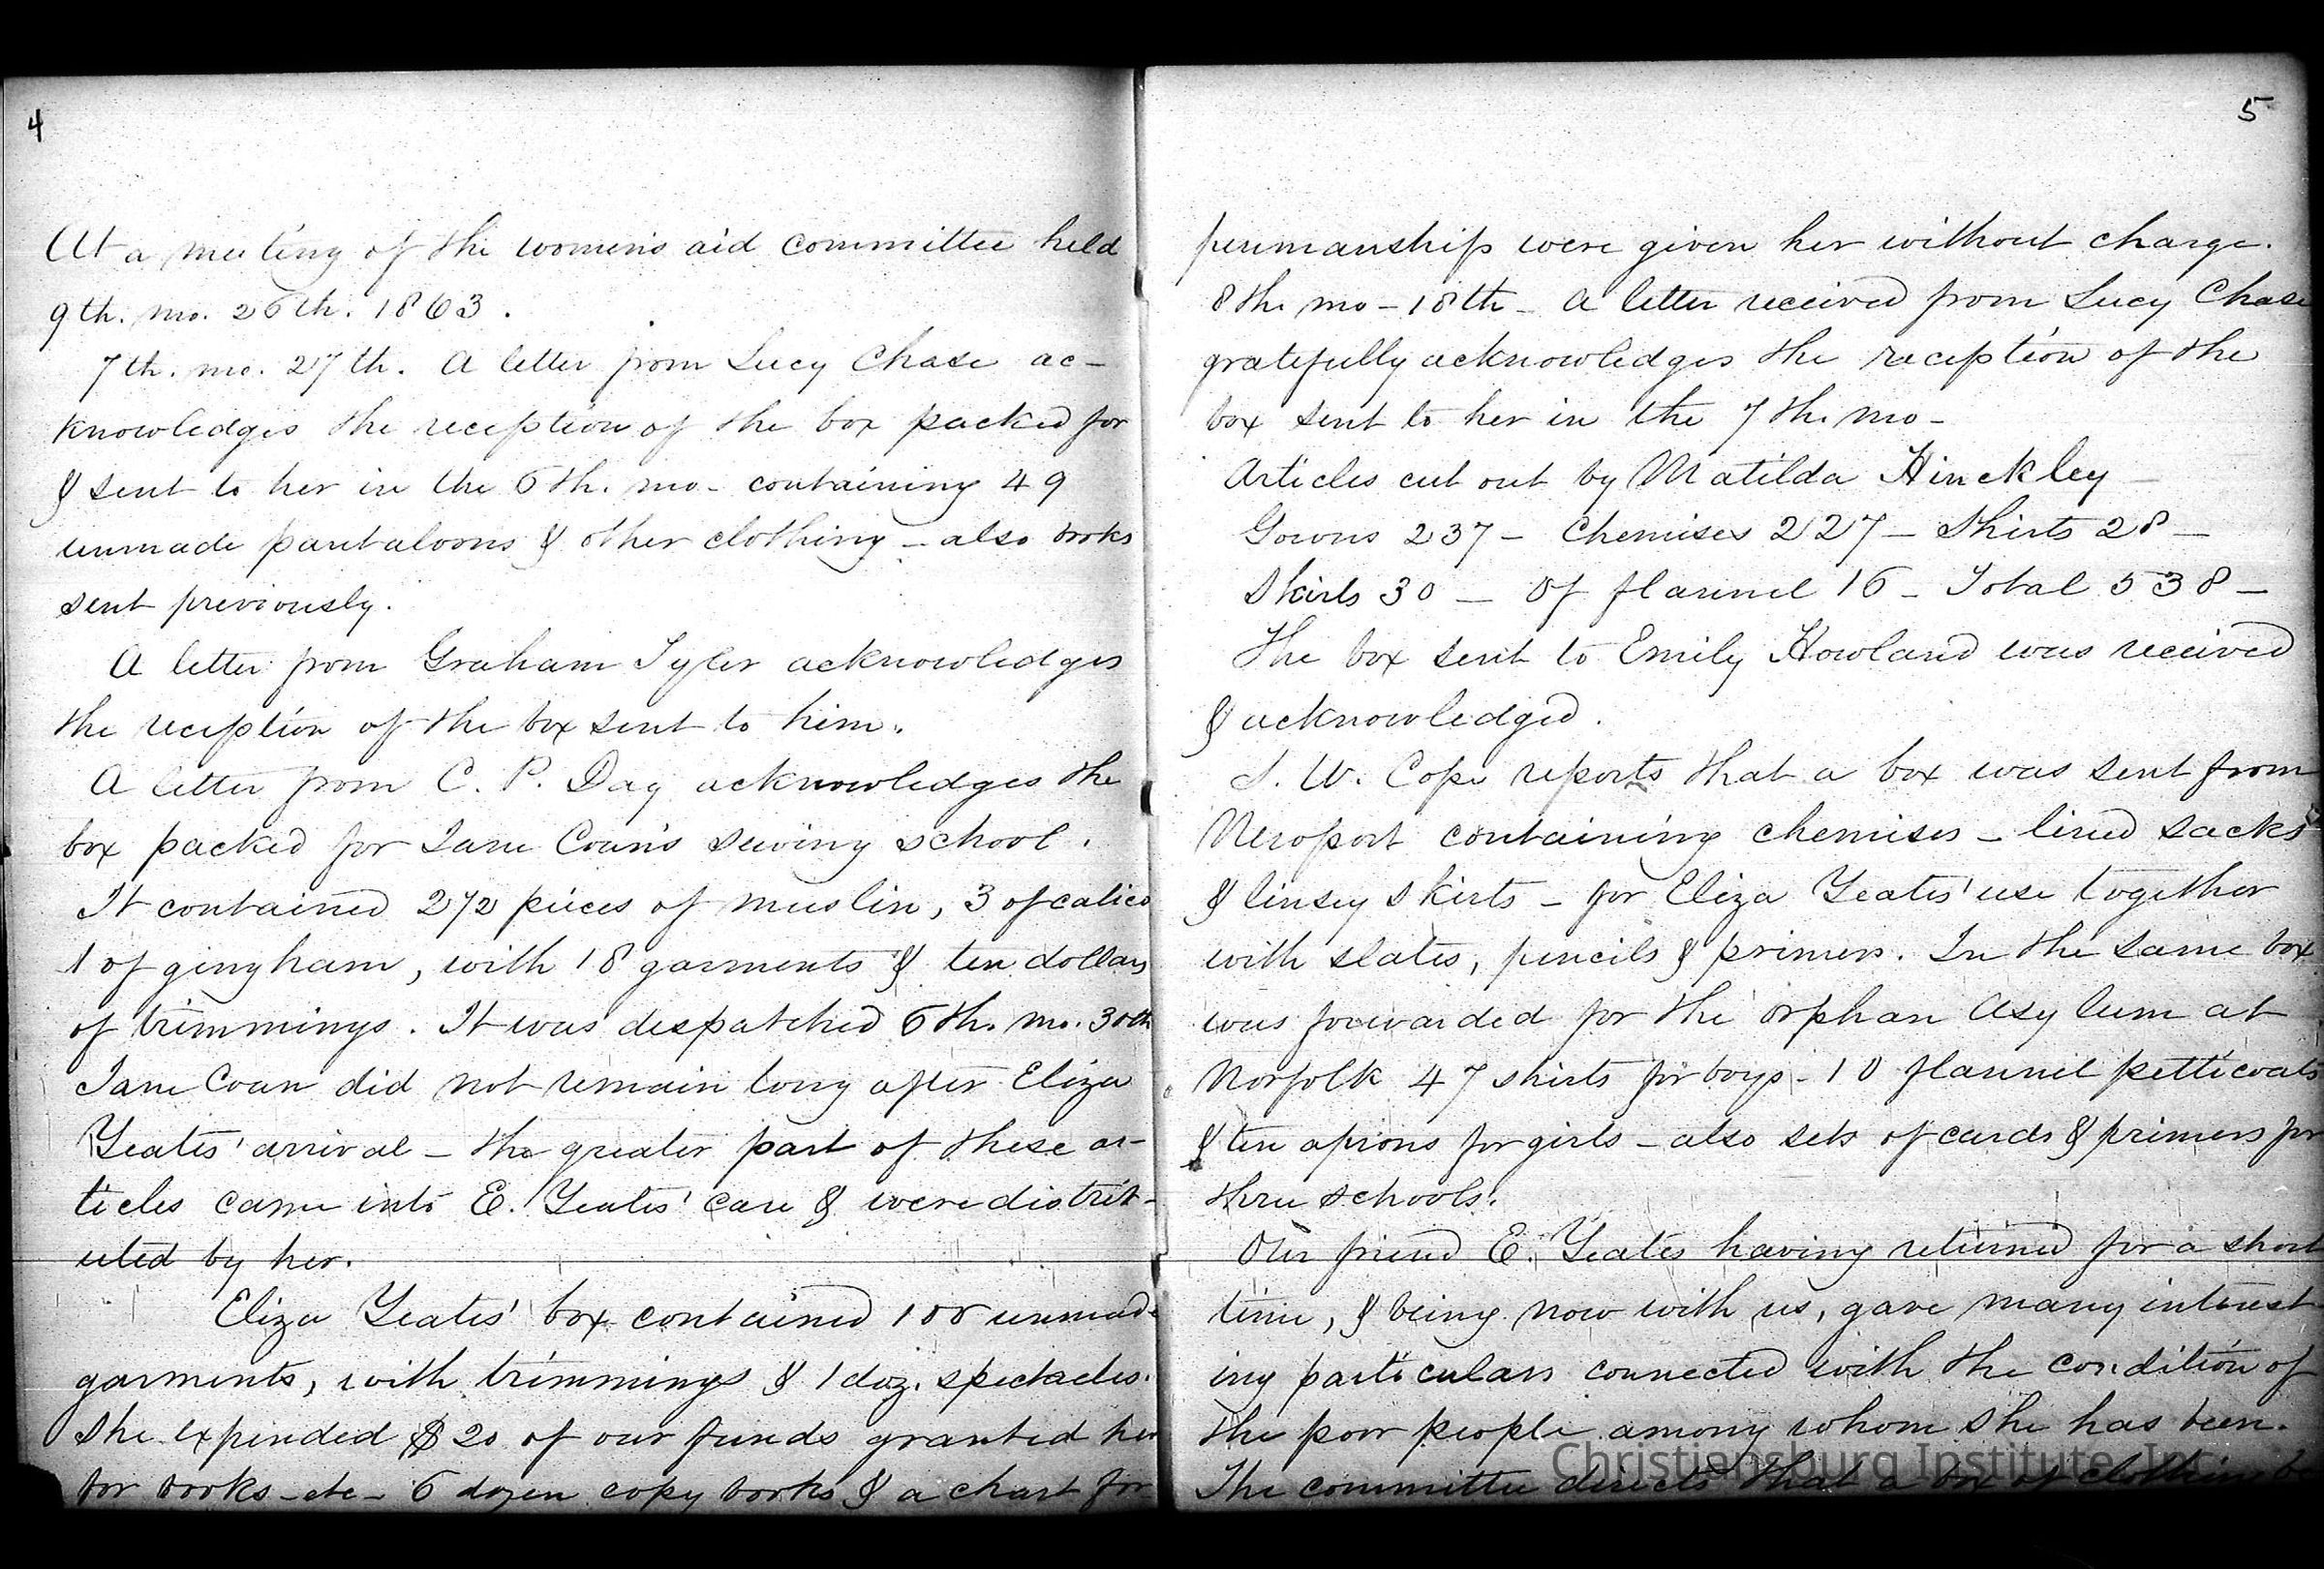 4
At a meeting of the women's aid committee held
9th. mo. 26th. 1863.
7th. mo. 27th. A letter from Lucy Chase ac-
knowledges the reception of the box packed for
& sent to her in the 6th. mo- containing 49
unmade pantaloons & other clothing - also books
sent previously.
A letter from Graham Tyler acknowledges
the reception of the box sent to him.
A letter from C. P. Day acknowledges the
box packed for Jane Coan's sewing school.
It contained 2 1/2 pieces of muslin, 3 of calico
1 of gingham, with 18 garments & ten dollars
of trimmings. It was despatched 6th. mo. 30th
Jane Coan did not remain long after Eliza
Yeates' arrival - the greater part of these ar-
ticles came into E. Yeates' care & were distrib-
uted by her.
Eliza Yeates' box contained 100 unmade
garments, with trimmings & 1 doz. spectacles.
She expended $20 of our funds granted her
for books - etc - 6 dozen copy books & a chart for
5
penmanship were given her without charge.
8th. mo - 18th - A letter received from Lucy Chase
gratefully acknowledges the reception of the
box sent to her in the 7th. mo -
Articles cut out by Matilda Hinckley -
Gowns 237 - Chemises 227 - Shirts 28 -
Skirts 30 - Of flannel 16 - Total 538 -
The box sent to Emily Howland was received
& acknowledged.
J. W. Cope reports that a box was sent from
Newport containing chemises - lined sacks
& linsey skirts - for Eliza Yeates' use together
with slates, pencils & primers. In the same box
was forwarded for the orphan Asylum at
Norfolk 47 shirts for boys - 10 flannel petticoats
& ten aprons for girls - also sets of cards & primers for
three schools.
Our friend E. Yeates having returned for a short
time, & being now with us, gave many interest
ing particulars connected with the condition of
the poor people among whom she has been.
The committee directs that a box of clothing be
Christiansburg Institute, Inc.